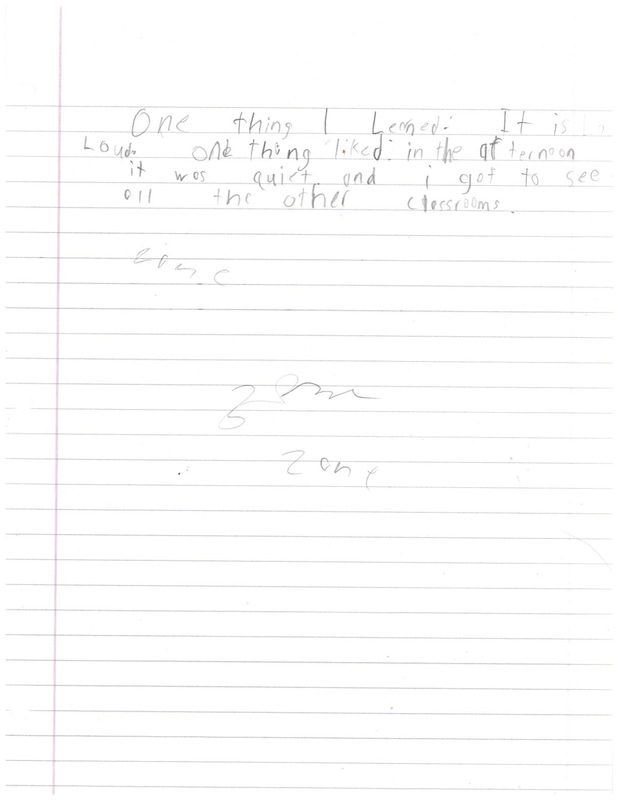 One thing I Lerned: It is
Loud. one thing i liked: in the afternoon
it was quiet and i got to see
all the other classrooms.
zone